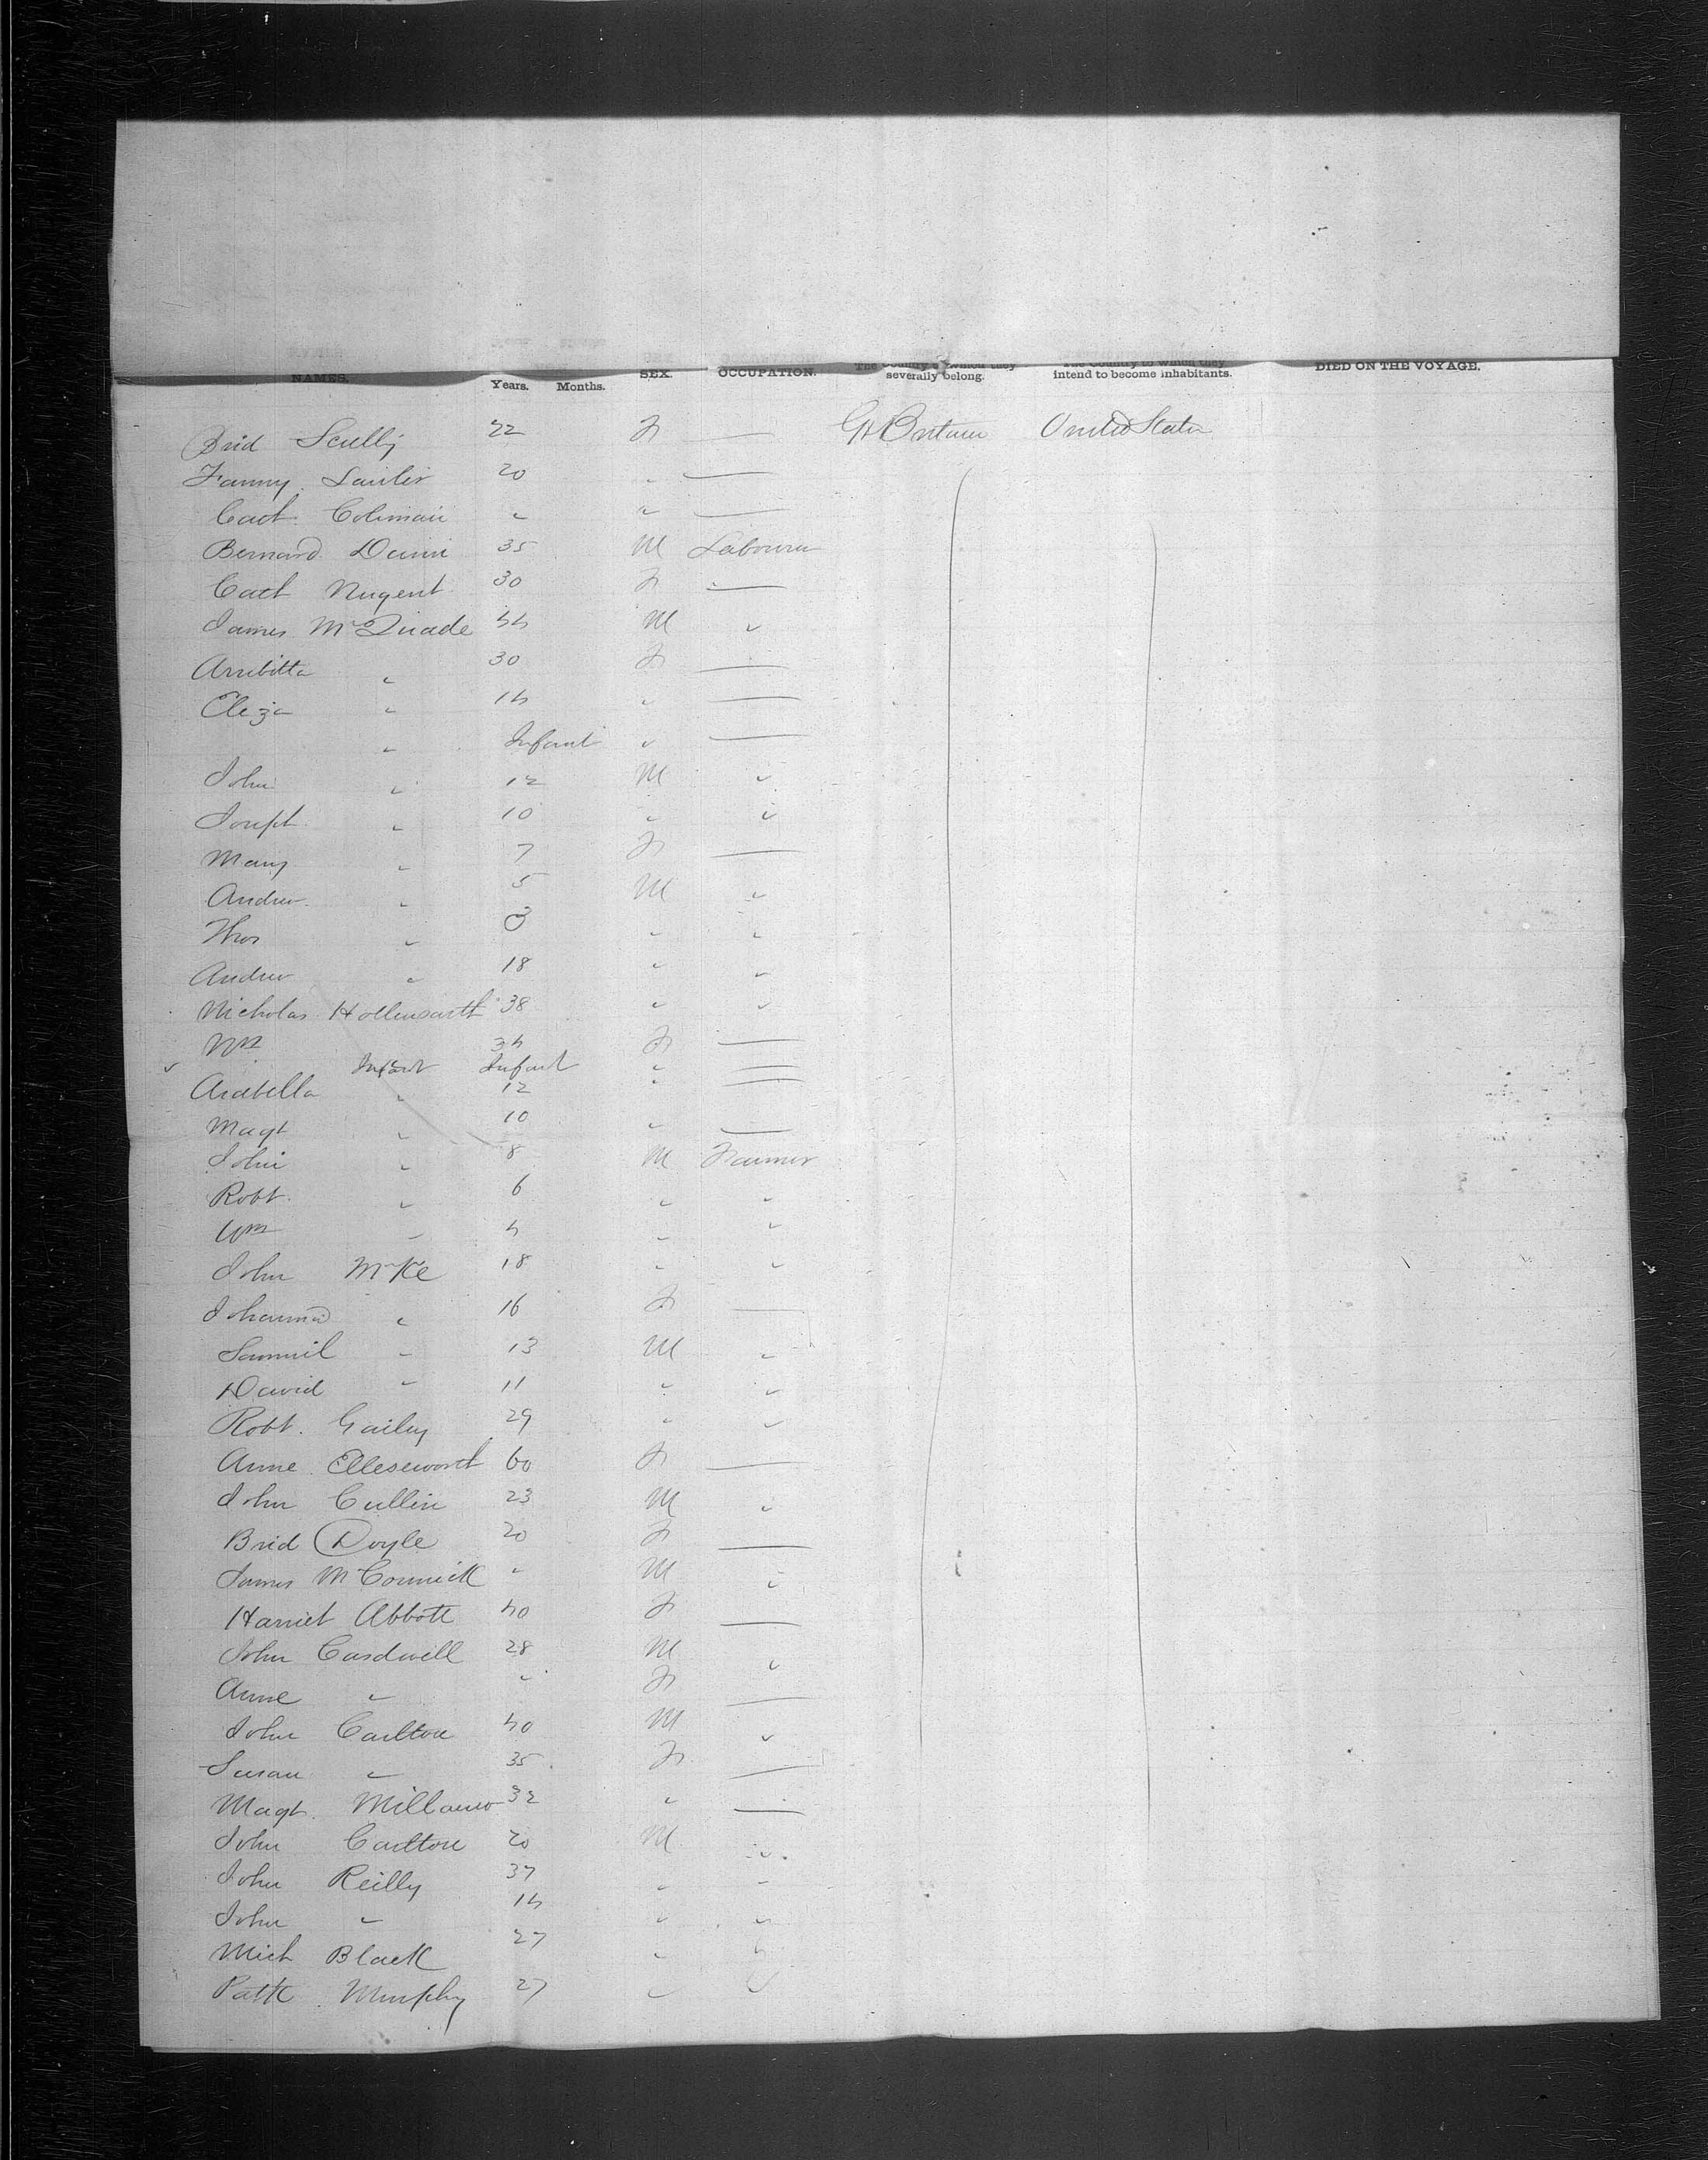 NAMES. Years. Months. SEX. OCCUPATION. The Country to which they severally belong. The Country to which they intend to become inhabitants. DIED ON THE VOYAGE.
Brid Scully 22 F — Gt Britain United States
Fanny 20 " —
Cath Coleman " " —
Bernard Dunn 35 M Labourer
Cath Nugent 30 F —
James McQuade 44 M "
Arrebitta " 30 F —
Eliza " 14 " —
" Infant " —
John " 12 M "
Joseph " 10 " "
Mary " 7 F —
Andrew " 5 M "
Thos " 3 " "
Andrew " 18 " "
Nicholas Hollinsworth 38 " "
Mrs 34 F —
Infant Infant " —
Arabella " 12 " —
Magt " 10 " —
John " 8 M Farmer
Robt. " 6 " "
Wm " 4 " "
John McKe 18 " "
Johanna " 16 F —
Samuel " 13 M "
David " 11 " "
Robt. Gailey 29 " "
Anne Elleseworth 60 F —
John Cullin 23 M "
Brid Doyle 20 F —
James McCormick " M "
Harriet Abbott 40 F —
John Cardwell 28 M "
Anne " " F —
John Carlton 40 M "
Susan " 35 F —
Magt. 32 " —
John Carlton 20 M "
John Reilly 37 " "
John " 14 " "
Mich Black 27 " "
Patk Murphy 27 " "